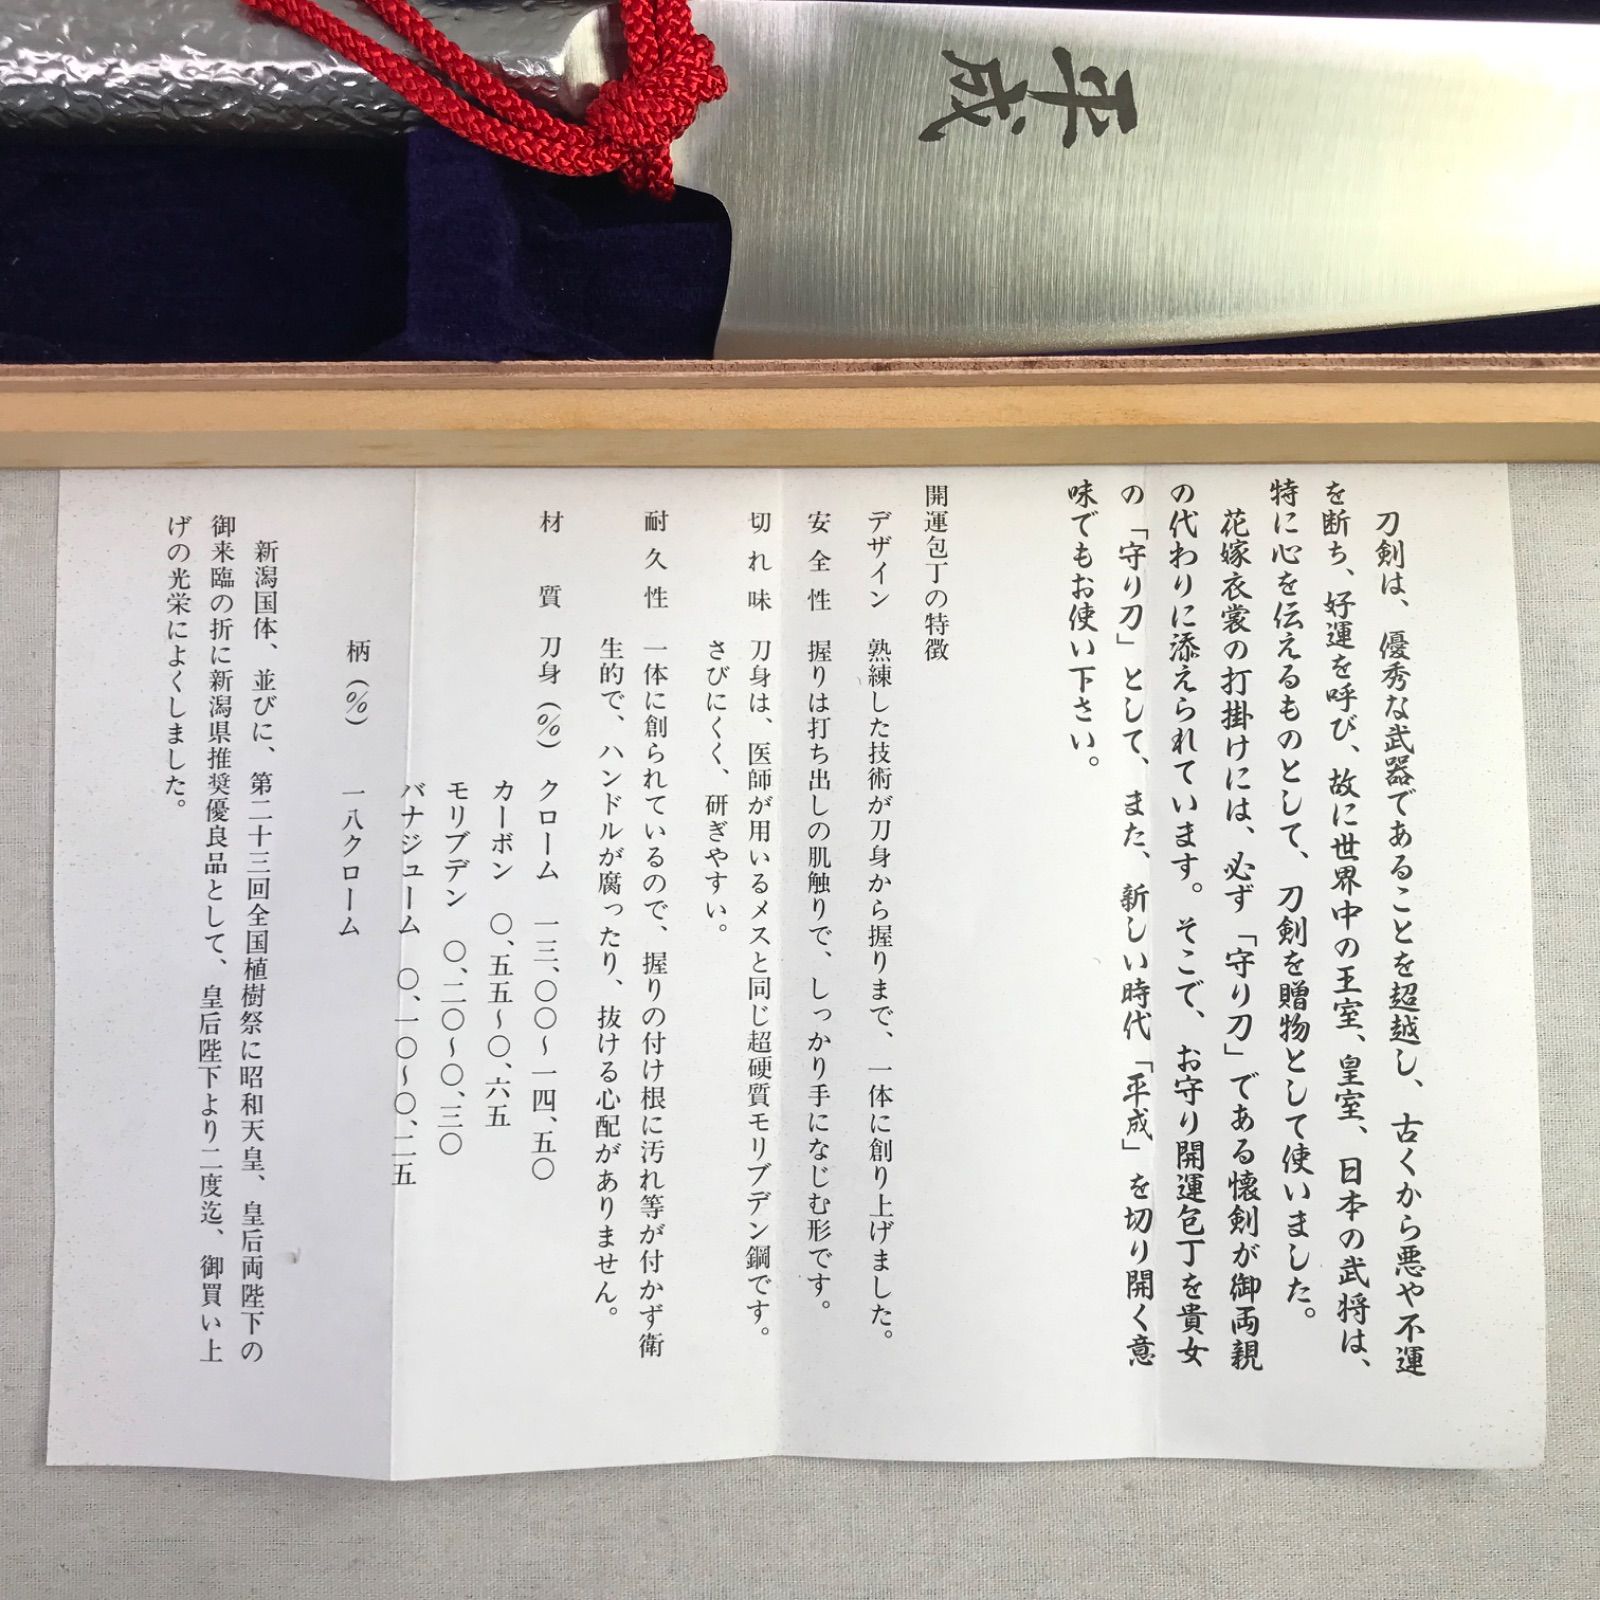 平成
刀剣は、優秀な武器であることを超越し、古くから悪や不運
を断ち、好運を呼び、故に世界中の王室、皇室、日本の武将は、
特に心を伝えるものとして、刀剣を贈物として使いました。
花嫁衣裳の打掛けには、必ず「守り刀」である懐剣が御両親
の代わりに添えられています。そこで、お守り開運包丁を貴女
の「守り刀」として、また、新しい時代「平成」を切り開く意
味でもお使い下さい。
開運包丁の特徴
デザイン 熟練した技術が刀身から握りまで、一体に創り上げました。
安全性 握りは打ち出しの肌触りで、しっかり手になじむ形です。
切れ味 刀身は、医師が用いるメスと同じ超硬質モリブデン鋼です。
さびにくく、研ぎやすい。
耐久性 一体に創られているので、握りの付け根に汚れ等が付かず衛
生的で、ハンドルが腐ったり、抜ける心配がありません。
材質 刀身(%) クローム 一三、〇〇〜一四、五〇
カーボン 〇、五五〜〇、六五
モリブデン 〇、二〇〜〇、三〇
バナジューム 〇、一〇〜〇、二五
柄(%) 一八クローム
新潟国体、並びに、第二十三回全国植樹祭に昭和天皇、皇后両陛下の
御来臨の折に新潟県推奨優良品として、皇后陛下より二度迄、御買い上
げの光栄によくしました。